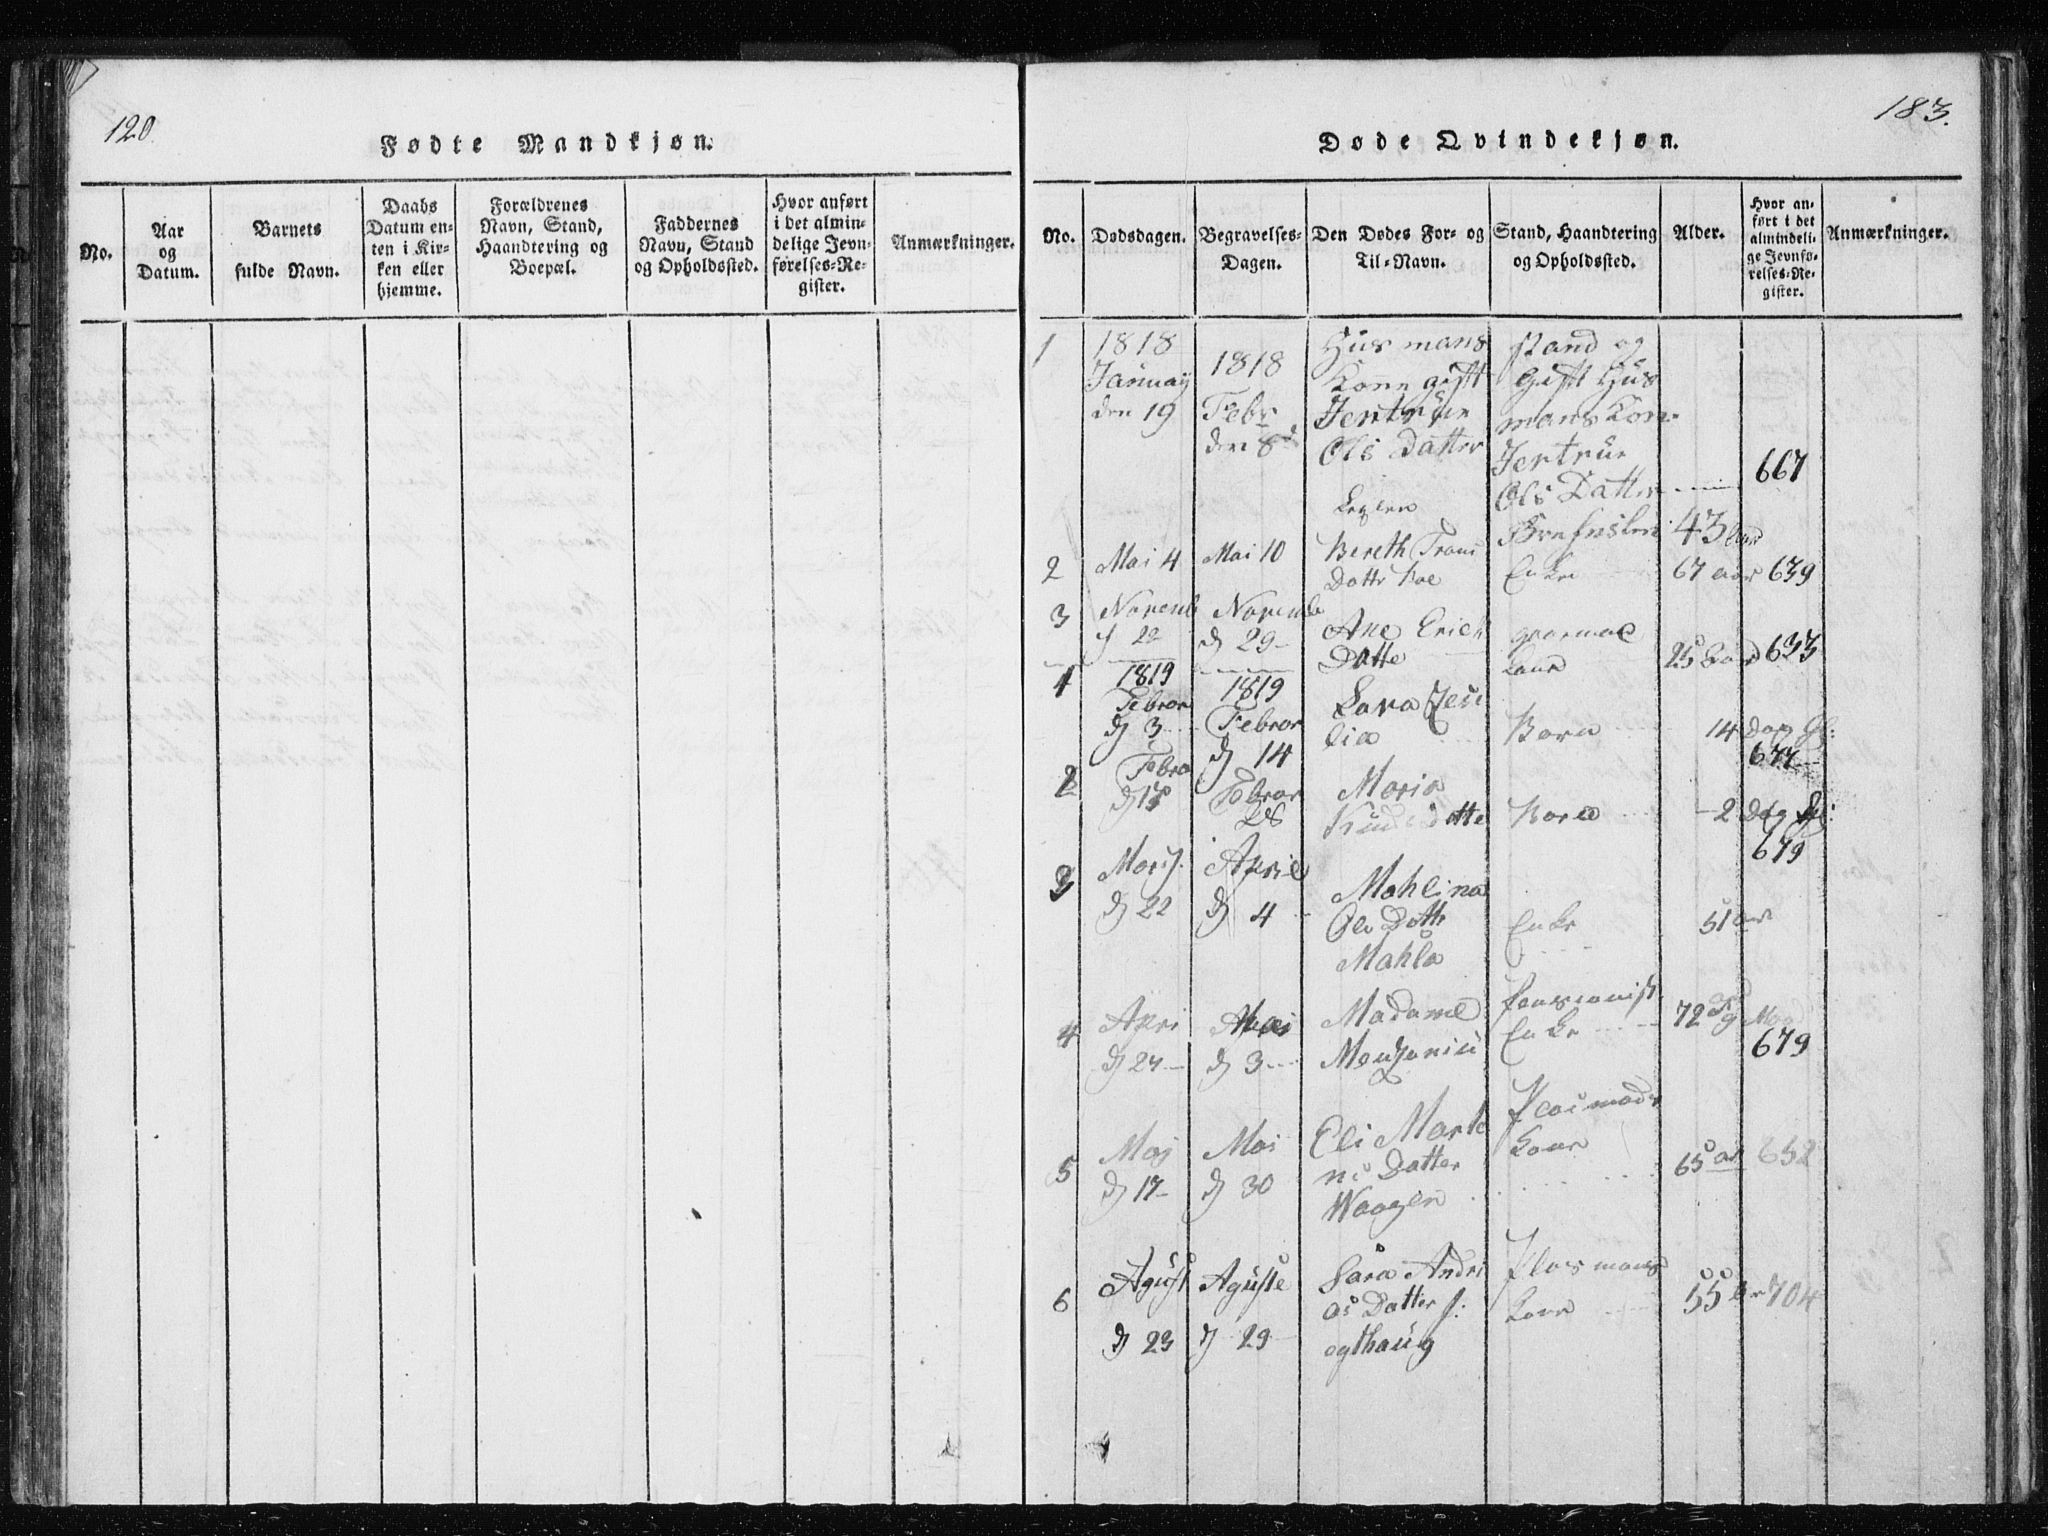 120
Fødte Mandkjøn.
No.
Aar
og
Datum.
Barnets
fulde Navn.
Daabs
Datum en-
ten i Kir-
ken eller
hjemme.
Forældrenes
Navn, Stand,
Haandtering og
Boepæl.
Faddernes
Navn, Stand
og Opholdssted.
Hvor anført
i det almin-
delige Jevn-
førelses-Re-
gister.
Anmærkninger.
183.
Døde Qvindekjøn.
No.
Dødsdagen.
Begravelses-
Dagen.
Den Dødes For- og
Til-Navn.
Stand, Haandtering
og Opholdssted.
Alder.
Hvor an-
ført i det
almindeli-
ge Jevnfø-
relses-Re-
gister.
Anmærkninger.
1
1818
Januarj
den 19
1818
Febr
den 8d
Hus mans
Kone gift
Jertrue
Ols Datter
stand og
Gift Hus
mans Kone
Jertrue
Ols Datter
43 aar
667
2
Mai 4
Mai 10
Bereth
Datter
Enke
67 aar
639
3
Novemb
d 22
Novemb
dj 29
Ane Erich
Datte
Kone
25 aar
633
1
1819
Februar
dj 3
1819
Februar
dj 14
Sara
lia
Barn
14 Dag
677
2
Febru
dj 17
Februar
28
Maria
Knuds Datte
Barn
2 Dag
679
3
Marj
dj 22
April
dj 4
Mahlina
Ole Datter
Mahla
Enke
51 aar
4
Apri
dj 27
Mai
dj 3
Madame
Enke
72
9
679
5
Maj
dj 17
Mai
dj 30
Eli Morte
ns Datter
Waagen
Plasmands
Kone
65 aar
652
6
Agust
dj 23
Aguste
dj 29
Sara Andri
as Datter
Plasmans
Kone
55
704